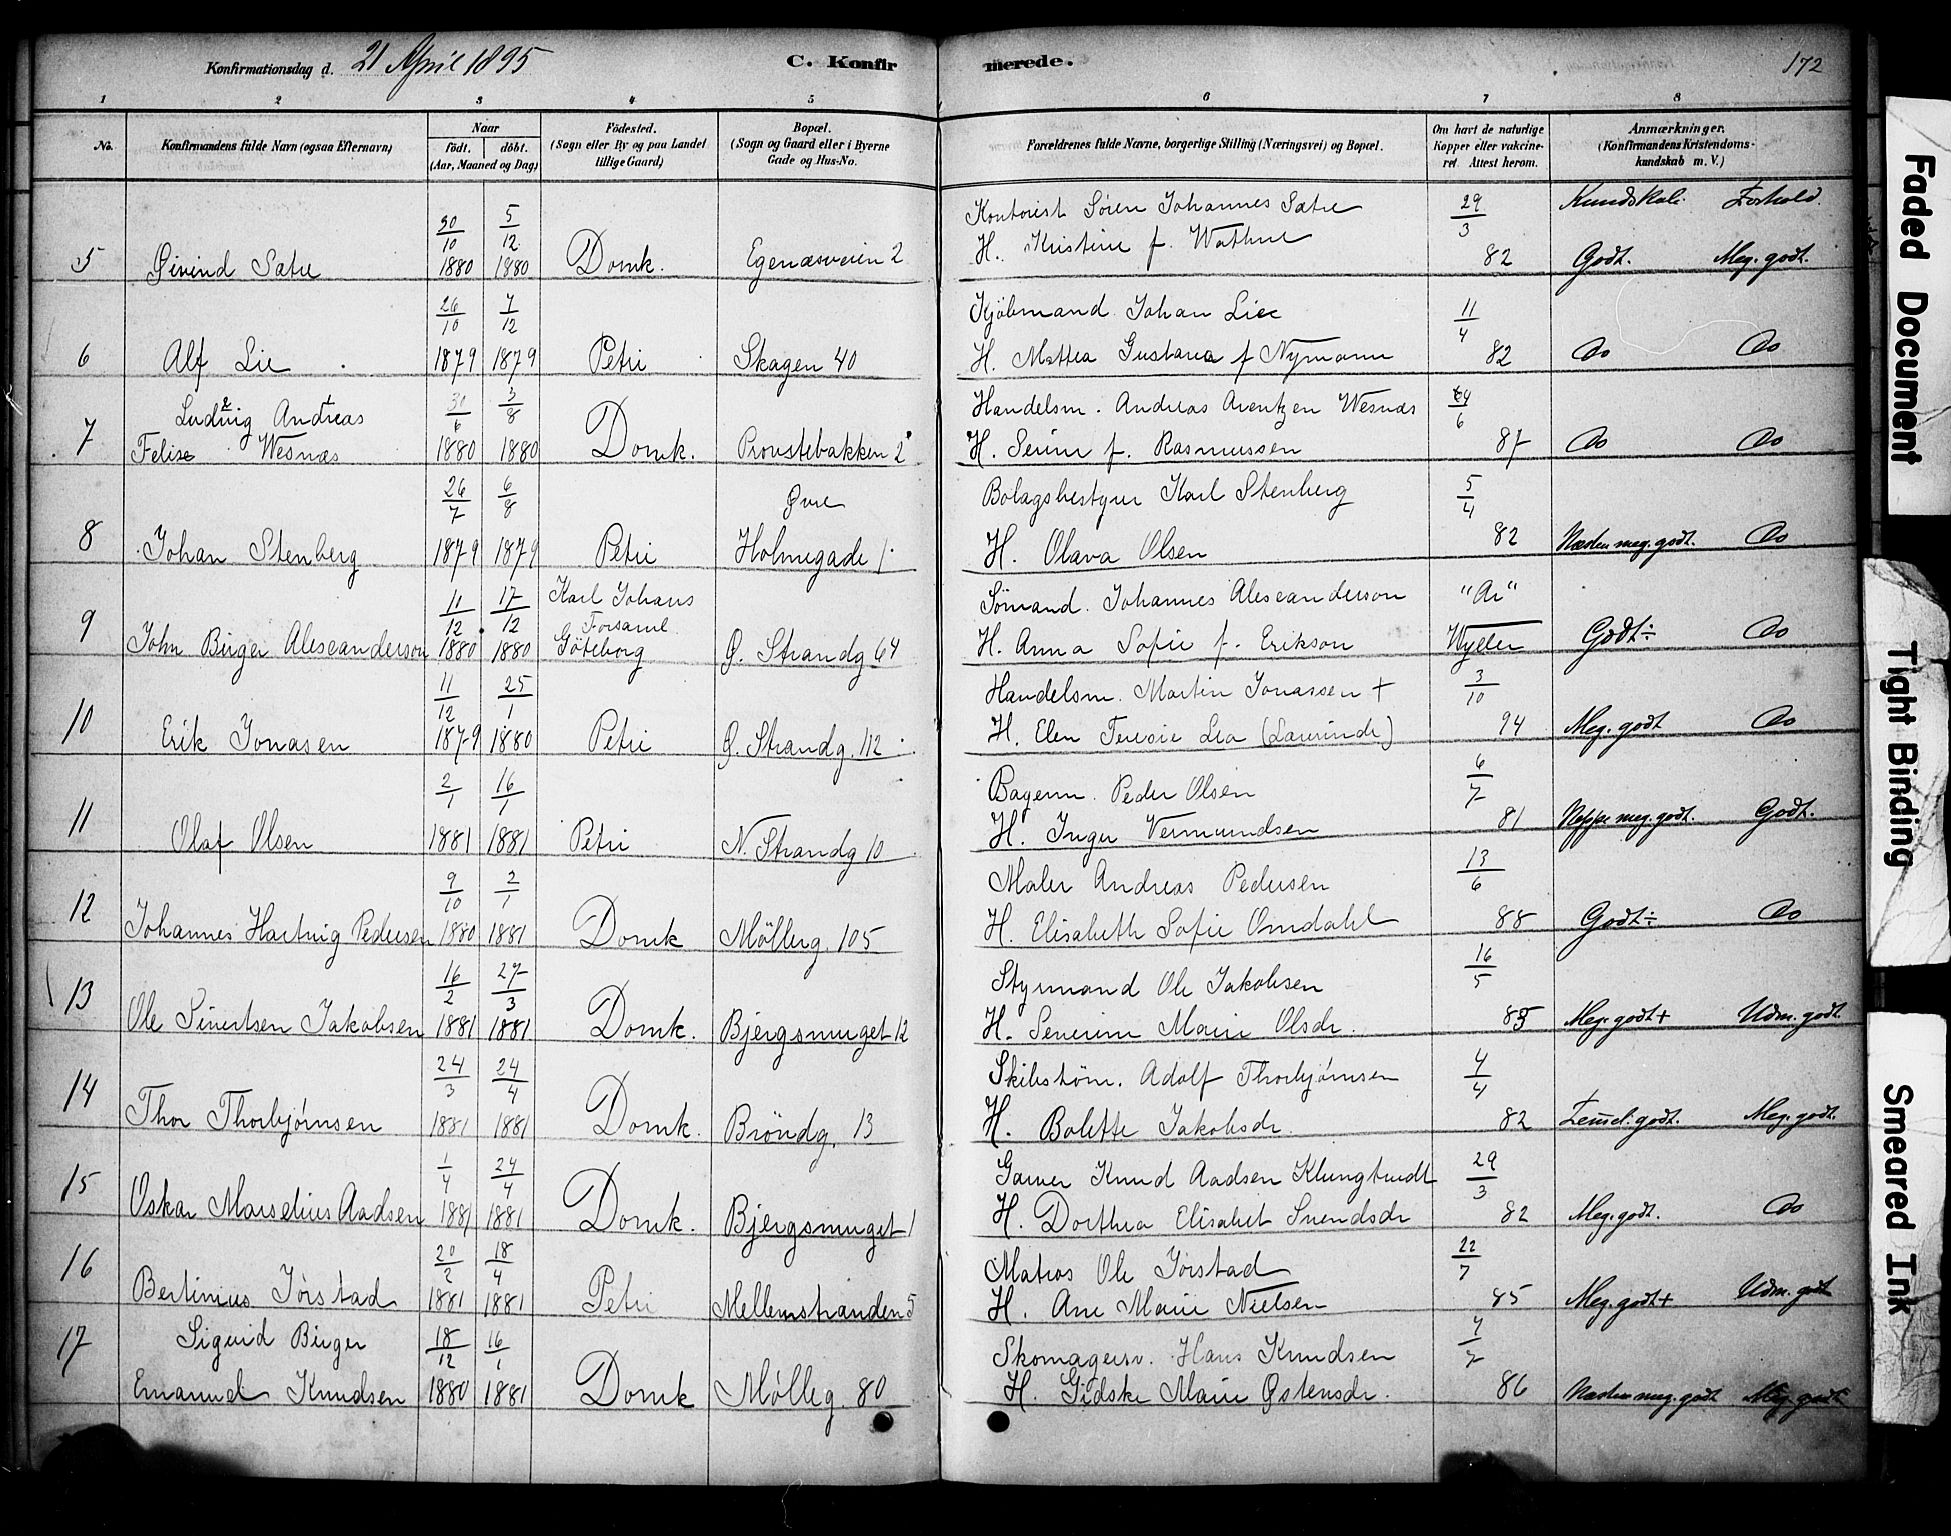 Konfirmationsdag d. 21 April 1895 C. Konfirmerede. 172
1 2 3 4 5 6 7 8
No. Konfirmandens fulde Navn (ogsaa Efternavn)
Naar født. døbt. (Aar, Maaned og Dag)
Fødested. (Sogn eller By og paa Landet tillige Gaard)
Bopæl. (Sogn og Gaard eller i Byerne Gade og Hus-No.
Forældrenes fulde Navne, borgerlige Stilling (Næringsvei) og Bopæl.
Om havt de naturlige Kopper eller vakcineret Attest herom.
Anmærkninger. (Konfirmandens Kristendomskundskab m. V.)
Kundskab. Forhold.
5 Øivind Sætre 30/10 1880 5/12 1880 Domk. Egenæsveien 2
Kontorist Sören Johannes Sætre
H. Kristine f. Wathne 29/3 82 Godt. Meg. godt.
6 Alf Lie 26/10 1879 7/12 1879 Petri Skagen 40
Kjöbmand Johan Lie
H. Mattea Gustava f Nymann 11/4 82 Do Do
7 Ludvig Andreas
Felix Wesnæs 30/6 1880 3/8 1880 Domk. Provstebakken 2
Handelsm. Andreas Arentzen Wesnæs
H. Serine f. Rasmussen 6 87 Do Do
8 Johan Stenberg 26/7 1879 6/8 1879 Petri Øvre
Holmegade 1
Bolagsbestyrer Karl Stenberg
H. Olava Olsen 5/4 82 Næsten meg. godt. Do
9 John Birger Alexanderson 11/12 1880 17/12 1880 Karl Johans
Forsaml.
Göteborg Ø. Strandg 64
Sömand. Johannes Alexanderson
H. Anna Sofie f. Erikson "Ar" Wyller Godt÷ Do
10 Erik Jonasen 11/12 1879 25/1 1880 Petri Ø. Strandg. 112
Handelsm. Martin Jonassen +
H. Elen Teresie Lea (Laurinde) 3/10 94 Meg. godt Do
11 Olaf Olsen 2/1 1881 16/1 1881 Petri N. Strandg 10
Bagerm. Peder Olsen
H. Inger Vermundsen 6/7 81 Neppe meg. godt. Godt.
12 Johannes Hartvig Pedersen 9/10 1880 2/1 1881 Domk Möllerg. 105
Maler Andreas Pedersen
H. Elisabeth Sofie Omdahl 13/6 88 Godt÷ Do
13 Ole Sivertsen Jakobsen 16/2 1881 27/3 1881 Domk. Bjergsmuget 12
Styrmand Ole Jakobsen
H. Severine Marie Olsdr. 16/5 85 Meg. godt+ Udm. godt.
14 Thor Thorbjørnsen 24/3 1881 24/4 1881 Domk. Bröndg. 13
Skibstöm. Adolf Thorbjørnsen
H. Bolette Jakobsdr. 4/4 82 Temel. godt. Meg. godt.
15 Oskar Marselius Aadsen 1/4 1881 24/4 1881 Domk. Bjergsmuget 1
Garver Knud Aadsen Klungtvedt
H. Dorthea Elisabet Svendsdr 29/3 82 Meg. godt. Do
16 Bertinius Jörstad 20/2 1881 18/4 1881 Petri Mellemstranden 5
Matros Ole Jörstad
H. Ane Marie Nielsen 22/7 85 Meg. godt+ Udm. godt
17 Sigurd Birger
Emanuel Knudsen 18/12 1880 16/1 1881 Domk Mölleg. 80
Skomagersv. Hans Knudsen
H. Gidske Marie Østensdr. 7 86 Næsten meg. godt Meg. godt
Faded Document
Tight Binding
Smeared Ink